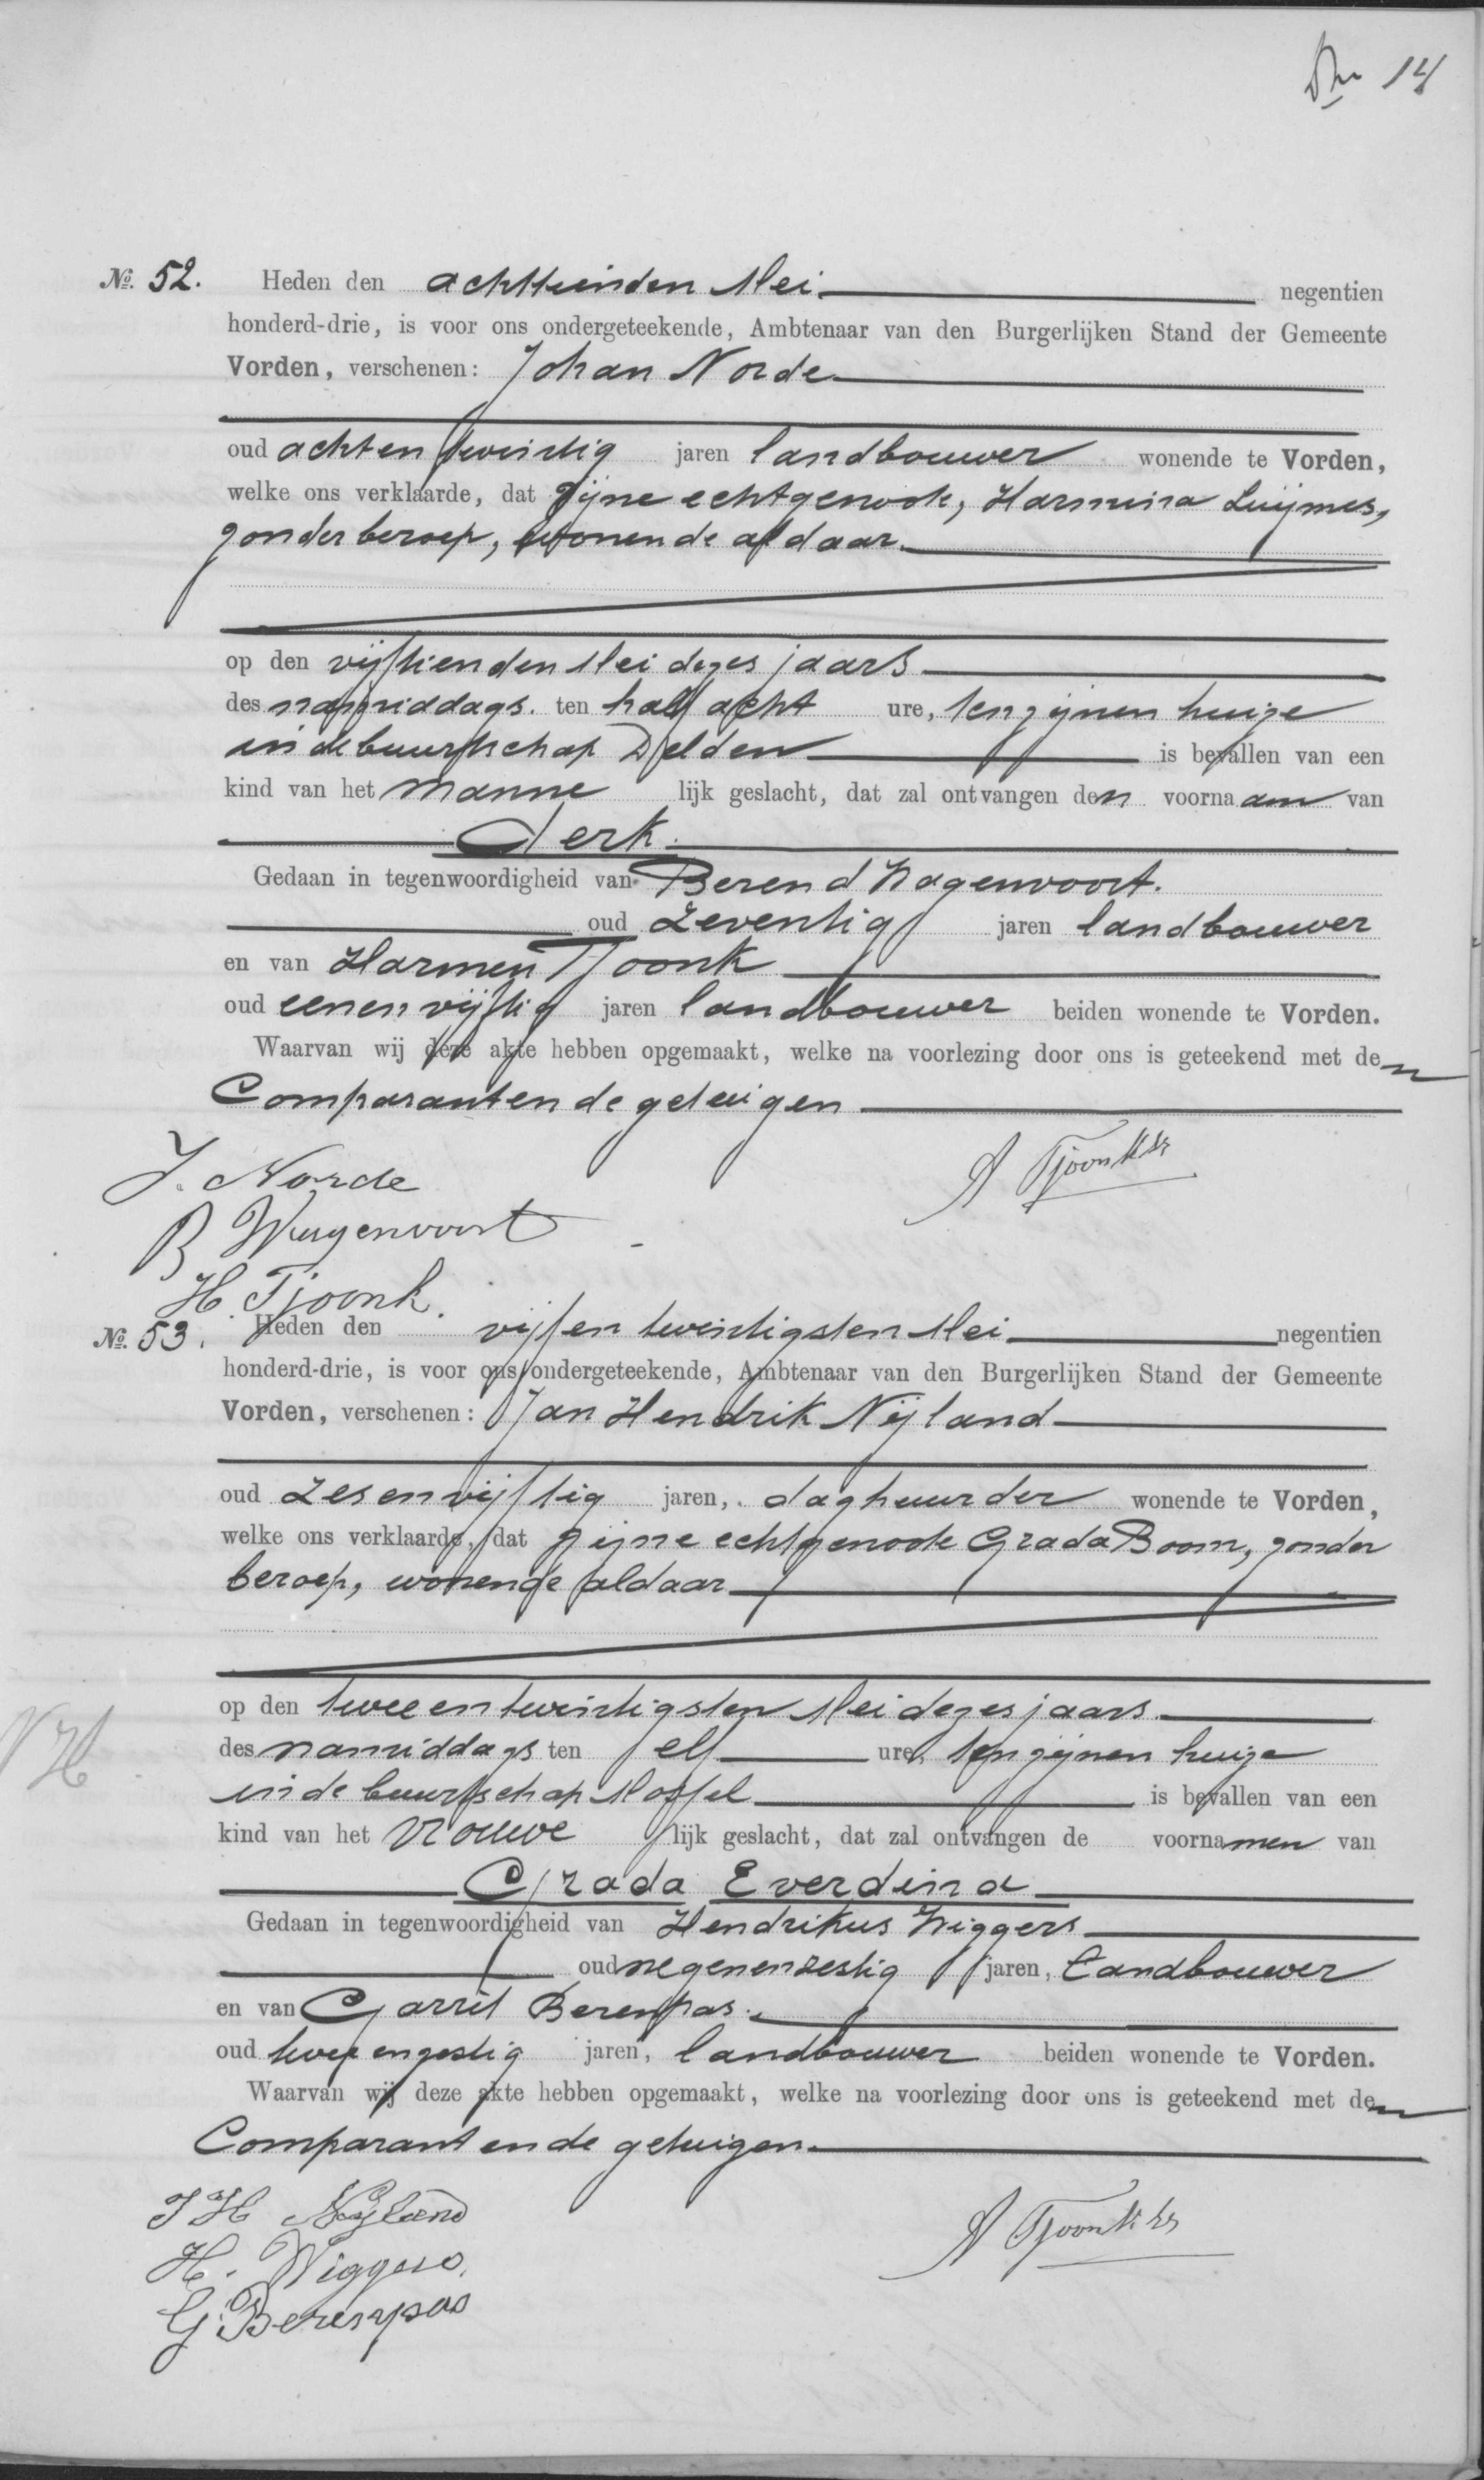 14
№ 52. Heden den achttienden Mei negentien
honderd-drie, is voor ons ondergeteekende, Ambtenaar van den Burgerlijken Stand der Gemeente
Vorden, verschenen: Johan Norde
oud achtentwintig jaren landbouwer wonende te Vorden,
welke ons verklaarde, dat zijne echtgenoote, Harmina Luijmes,
zonder beroep, wonende aldaar.
op den vijftienden Mei dezes jaars
des namiddags. ten half acht ure, ten zijnen huize
in de buurtschap Delden is bevallen van een
kind van het manne lijk geslacht, dat zal ontvangen den voornaam van
Derk.
Gedaan in tegenwoordigheid van Berend Wagenvoort.
oud zeventig jaren landbouwer
en van Harmen Tjoonk
oud eenenvijftig jaren landbouwer beiden wonende te Vorden.
Waarvan wij deze akte hebben opgemaakt, welke na voorlezing door ons is geteekend met den
Comparant en de getuigen
J. Norde
A Tjoonk
B Wagenvoort
H. Tjoonk.
№ 53. Heden den vijfentwintigsten Mei negentien
honderd-drie, is voor ons ondergeteekende, Ambtenaar van den Burgerlijken Stand der Gemeente
Vorden, verschenen: Jan Hendrik Nijland
oud zesenvijftig jaren, daghuurder wonende te Vorden,
welke ons verklaarde, dat zijne echtgenoote Grada Boom, zonder
beroep, wonende aldaar
op den tweeentwintigsten Mei dezes jaars
des namiddags ten elf ure, ten zijnen huize
in de buurtschap Mossel is bevallen van een
kind van het vrouwe lijk geslacht, dat zal ontvangen de voornamen van
Grada Everdina
Gedaan in tegenwoordigheid van Hendrikus Wiggers
oud negenenzestig jaren, landbouwer
en van Garrit Berenpas.
oud tweeenzestig jaren, landbouwer beiden wonende te Vorden.
Waarvan wij deze akte hebben opgemaakt, welke na voorlezing door ons is geteekend met den
Comparant en de getuigen.
NH
J H Nijland
A Tjoonk
H. Wiggers.
G. Berenpas